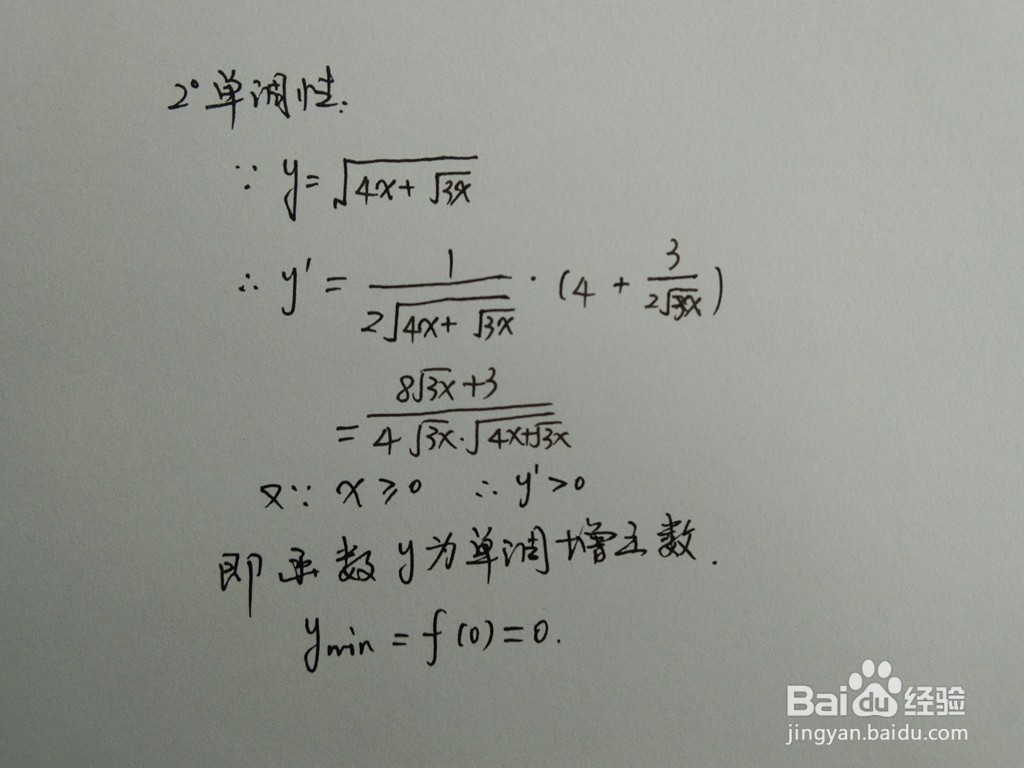 2° 单调性.
∵ y = √(4x + √(3x))
∴ y' = 1/(2√(4x + √(3x))) · (4 + 3/(2√(3x)))
= (8√(3x) + 3)/(4√(3x)·√(4x+√(3x)))
又∵ x ≥ 0 ∴ y' > 0
即函数 y 为单调增函数.
ymin = f(0) = 0.
Bai du 经验
jingyan.baidu.com